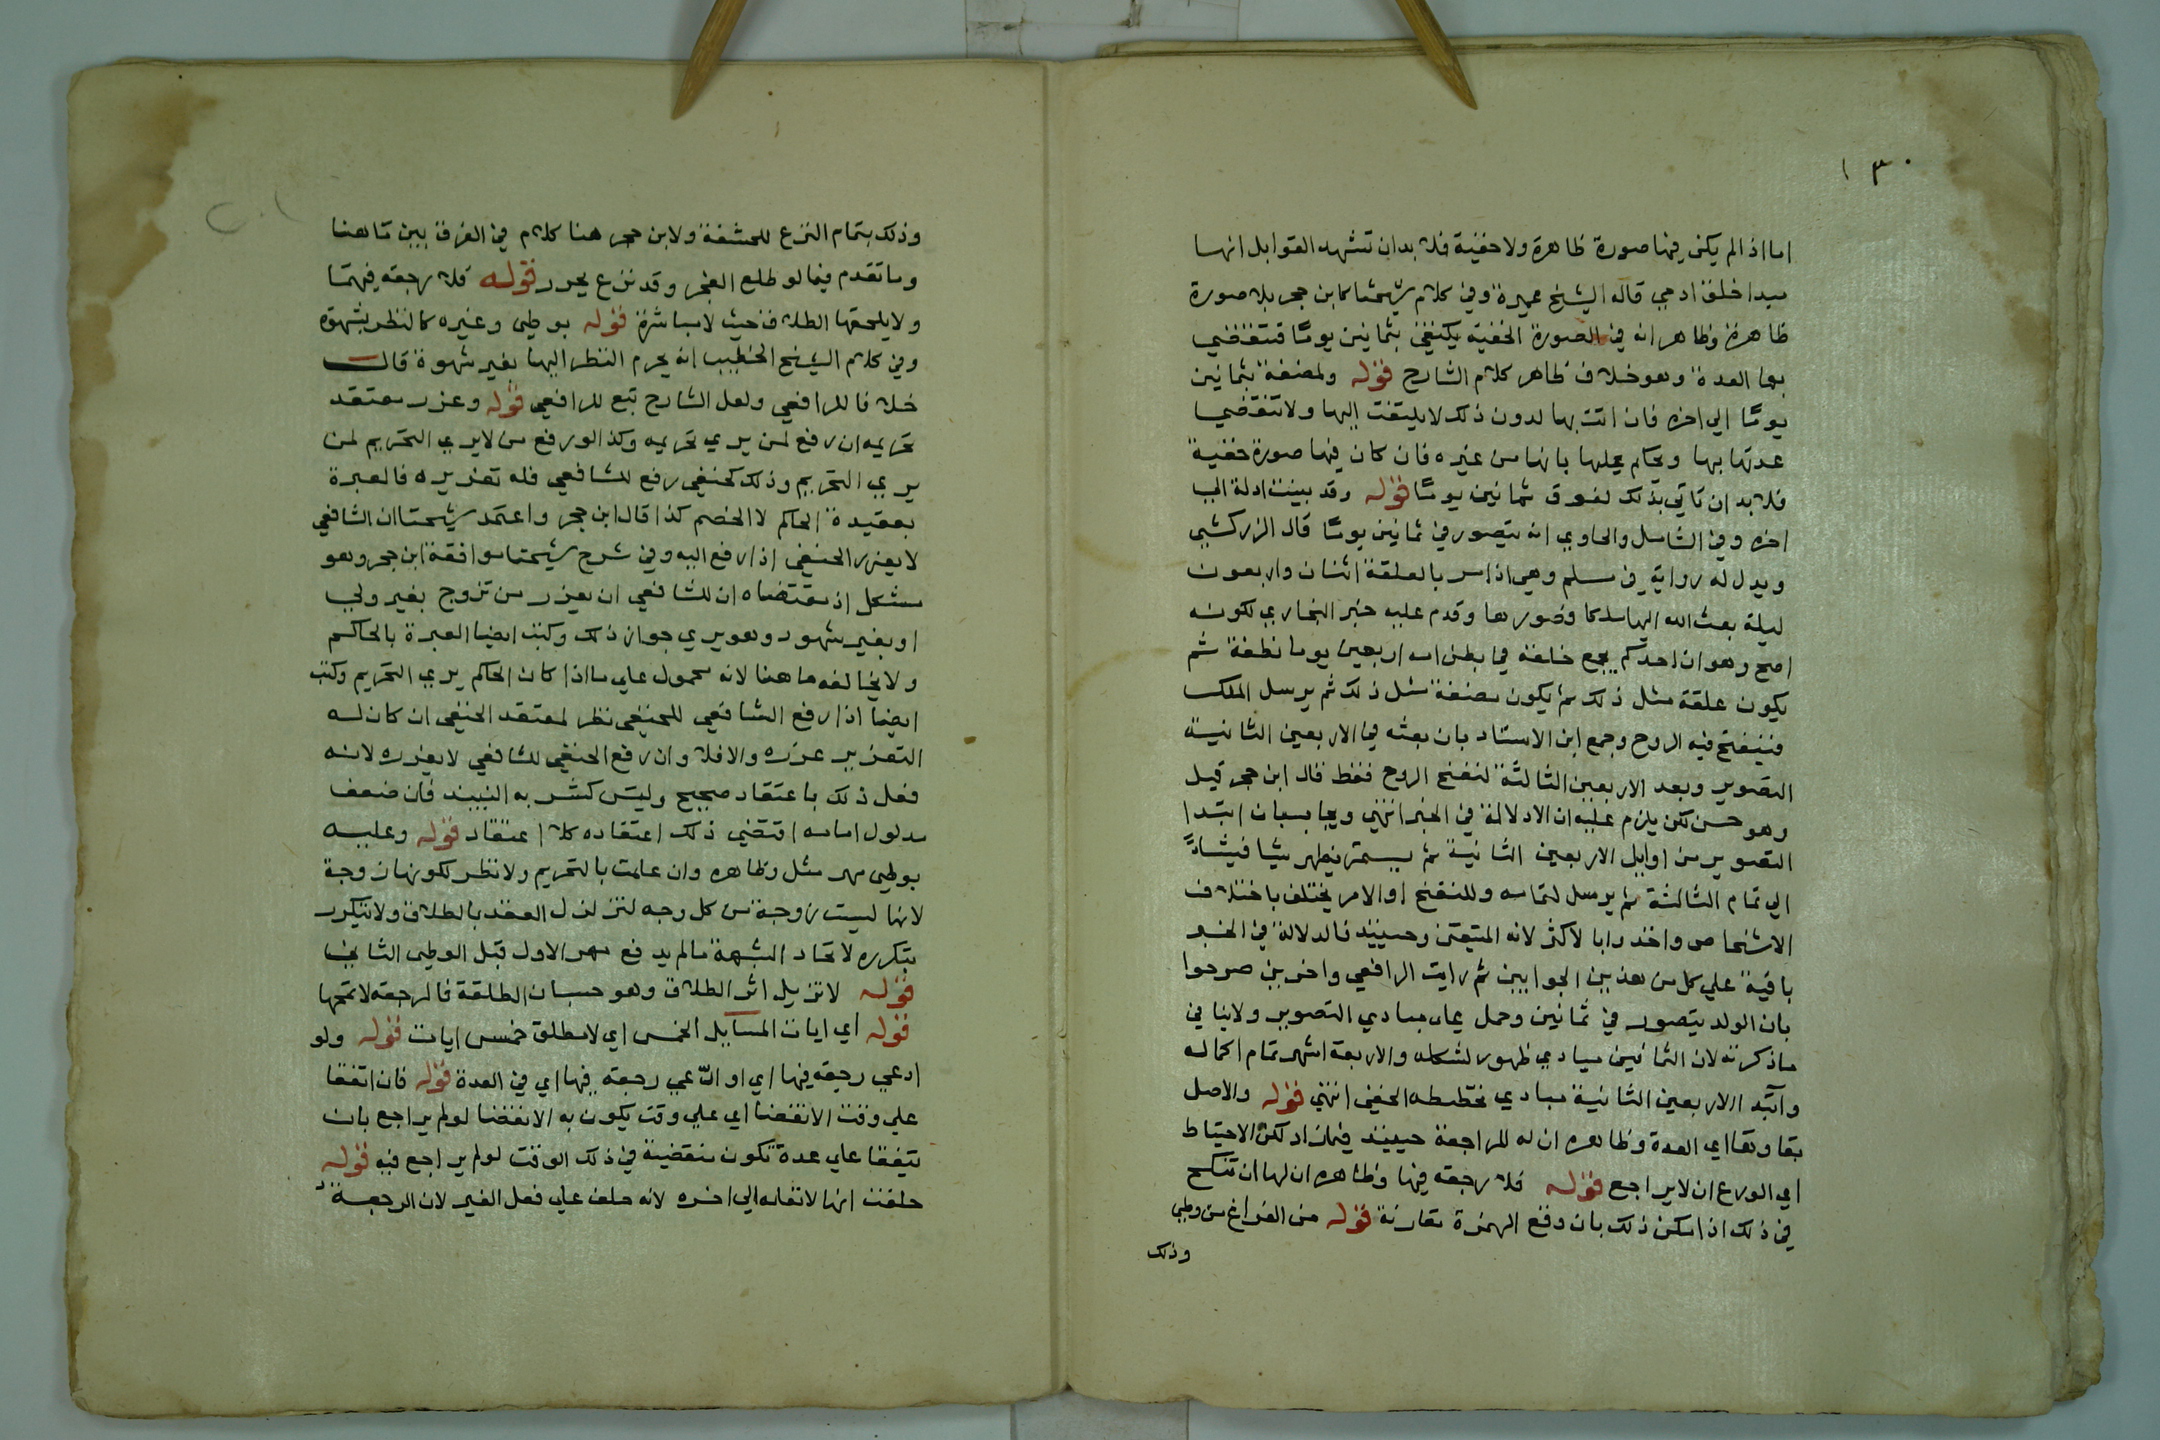 ١٣٠
اما اذا لم يكن فيها صورة ظاهرة ولا خفية فلا بد ان تشهد القوابل انها
مبدا خلق ادمي قاله الشيخ عميرة وفي كلام شيخنا كابن حجر بلا صورة
ظاهرة وظاهر انه في الصورة الخفية يكتفي بثمانين يوما فتنقضي
بها العدة وهو خلاف ظاهر كلام الشارح قوله ولمضغة بثمانين
يوما الي اخره فان اتت بها لدون ذلك لا يلتفت اليها ولا تنقضي
عدتها بها ويحكم بانها من غيره فان كان فيها صورة خفية
فلا بد ان تاتي بذلك لفوق ثمانين يوما قوله وقد بينت ادلة الي
اخره وفي الشامل والحاوي انه يتصور في ثمانين يوما قال الزركشي
ويدل له رواية في مسلم وهي اذا مر بالعلقة اثنان واربعون
ليلة بعث الله اليها ملكا فصورها وقدم عليه خبر البخاري لكونه
اصح وهو ان احدكم يجمع خلقه في بطن امه اربعين يوما نطفة ثم
يكون علقة مثل ذلك ثم يكون مضغة مثل ذلك ثم يرسل الملك
فينفخ فيه الروح وجمع ابن الاستاد بان بعثه في الاربعين الثانية
التصوير وبعد الاربعين الثالثة لنفخ الروح فقط قال ابن حجر قيل
وهو حسن لكن يلزم عليه ان لا دلالة في الخبر انتهي ويجاب بان ابتدا
التصوير من اوايل الاربعين الثانية ثم يستمر يظهر شيا فشيا
الي تمام الثالثة ثم يرسل لتمامه وللنفخ او الامر يختلف باختلاف
الاشخاص واخذوا بالاكثر لانه المتيقن وحينيذ فالدلالة في الخبر
باقية علي كل من هذين الجوابين ثم رايت الرافعي واخرين صرحوا
بان الولد يتصور في ثمانين وحمل علي مبادي التصوير ولا ينافي
ما ذكرته لان الثمانين مبادي ظهور لشكله والاربعة اشهر تمام اكماله
وابتدا الاربعين الثانية مبادي تخطيطه الخفي انتهي قوله والاصل
بقاوها اي العدة وظاهره ان له المراجعة حينيذ فيما زاد لكن الاحتياط
اي الورع ان لا يراجع قوله فلا رجعة فيها وظاهره ان لها ان تنكح
في ذلك اذ امكن ذلك بان وقع الهمزة مقارنة قوله من الفراغ من وطي
وذلك
وذلك بتمام النزع للحشفة ولابن حجر هنا كلام في الفرق بين ما هنا
وما تقدم فيما لو طلع الفجر وقد نزع يحرر قوله فلا رجعة فيهما
ولا يلحقها الطلاق حيث لا مباشرة قوله بوطي وغيره كالنظر بشهوة
وفي كلام الشيخ الخطيب انه يحرم النظر اليها بغير شهوة قال
خلافا للرافعي ولعل الشارح تبع الرافعي قوله وعزر معتقد
تحريمه ان رفع لمن يري تحريمه وكذا لو رفع من لا يري التحريم لمن
يري التحريم وذلك كحنفي رفع لشافعي فله تعزيره فالعبرة
بعقيدة الحاكم لا الخصم كذا قال ابن حجر واعتمد شيخنا ان الشافعي
لا يعزر الحنفي اذا رفع اليه وفي شرح شيخنا موافقة ابن حجر وهو
مشكل اذ مقتضاه ان للشافعي ان يعزر من تزوج بغير ولي
او بغير شهود وهو يري جواز ذلك وكتب ايضا العبرة بالحاكم
ولا يخالفه ما هنا لانه محمول علي ما اذا كان الحاكم يري التحريم وكتب
ايضا اذا رفع الشافعي للحنفي نظر لمعتقد الحنفي ان كان له
التعزير عزره والا فلا وان رفع الحنفي لشافعي لا يعزره لانه
فعل ذلك باعتقاد صحيح وليس كشربه النبيذ فان ضعف
مدلول امامه اقتضي ذلك اعتقاده كلا اعتقاد قوله وعليه
بوطي مهر مثل وظاهره وان علمت بالتحريم ولا نظر لكونها زوجة
لانها ليست زوجة من كل وجه لتزلزل العقد بالطلاق ولا يتكرر
بتكرره لاتحاد الشبهة ما لم يدفع مهر الاول قبل الوطي الثاني
قوله لا تزيل اثر الطلاق وهو حسبان الطلقة فالرجعة لا تمحها
قوله اي ايات المسايل الخمس اي لا مطلق خمس ايات قوله ولو
ادعي رجعة فيها اي او ادعي رجعة فيها اي في العدة قوله فان اتفقا
علي وقت الانقضا اي علي وقت يكون به الانقضا لو لم يراجع بان
يتفقا علي عدة تكون منقضية في ذلك الوقت لو لم يراجع فيه قوله
حلفت انها لا تعلم الي اخره لانه حلف علي فعل الغير لان الرجعة